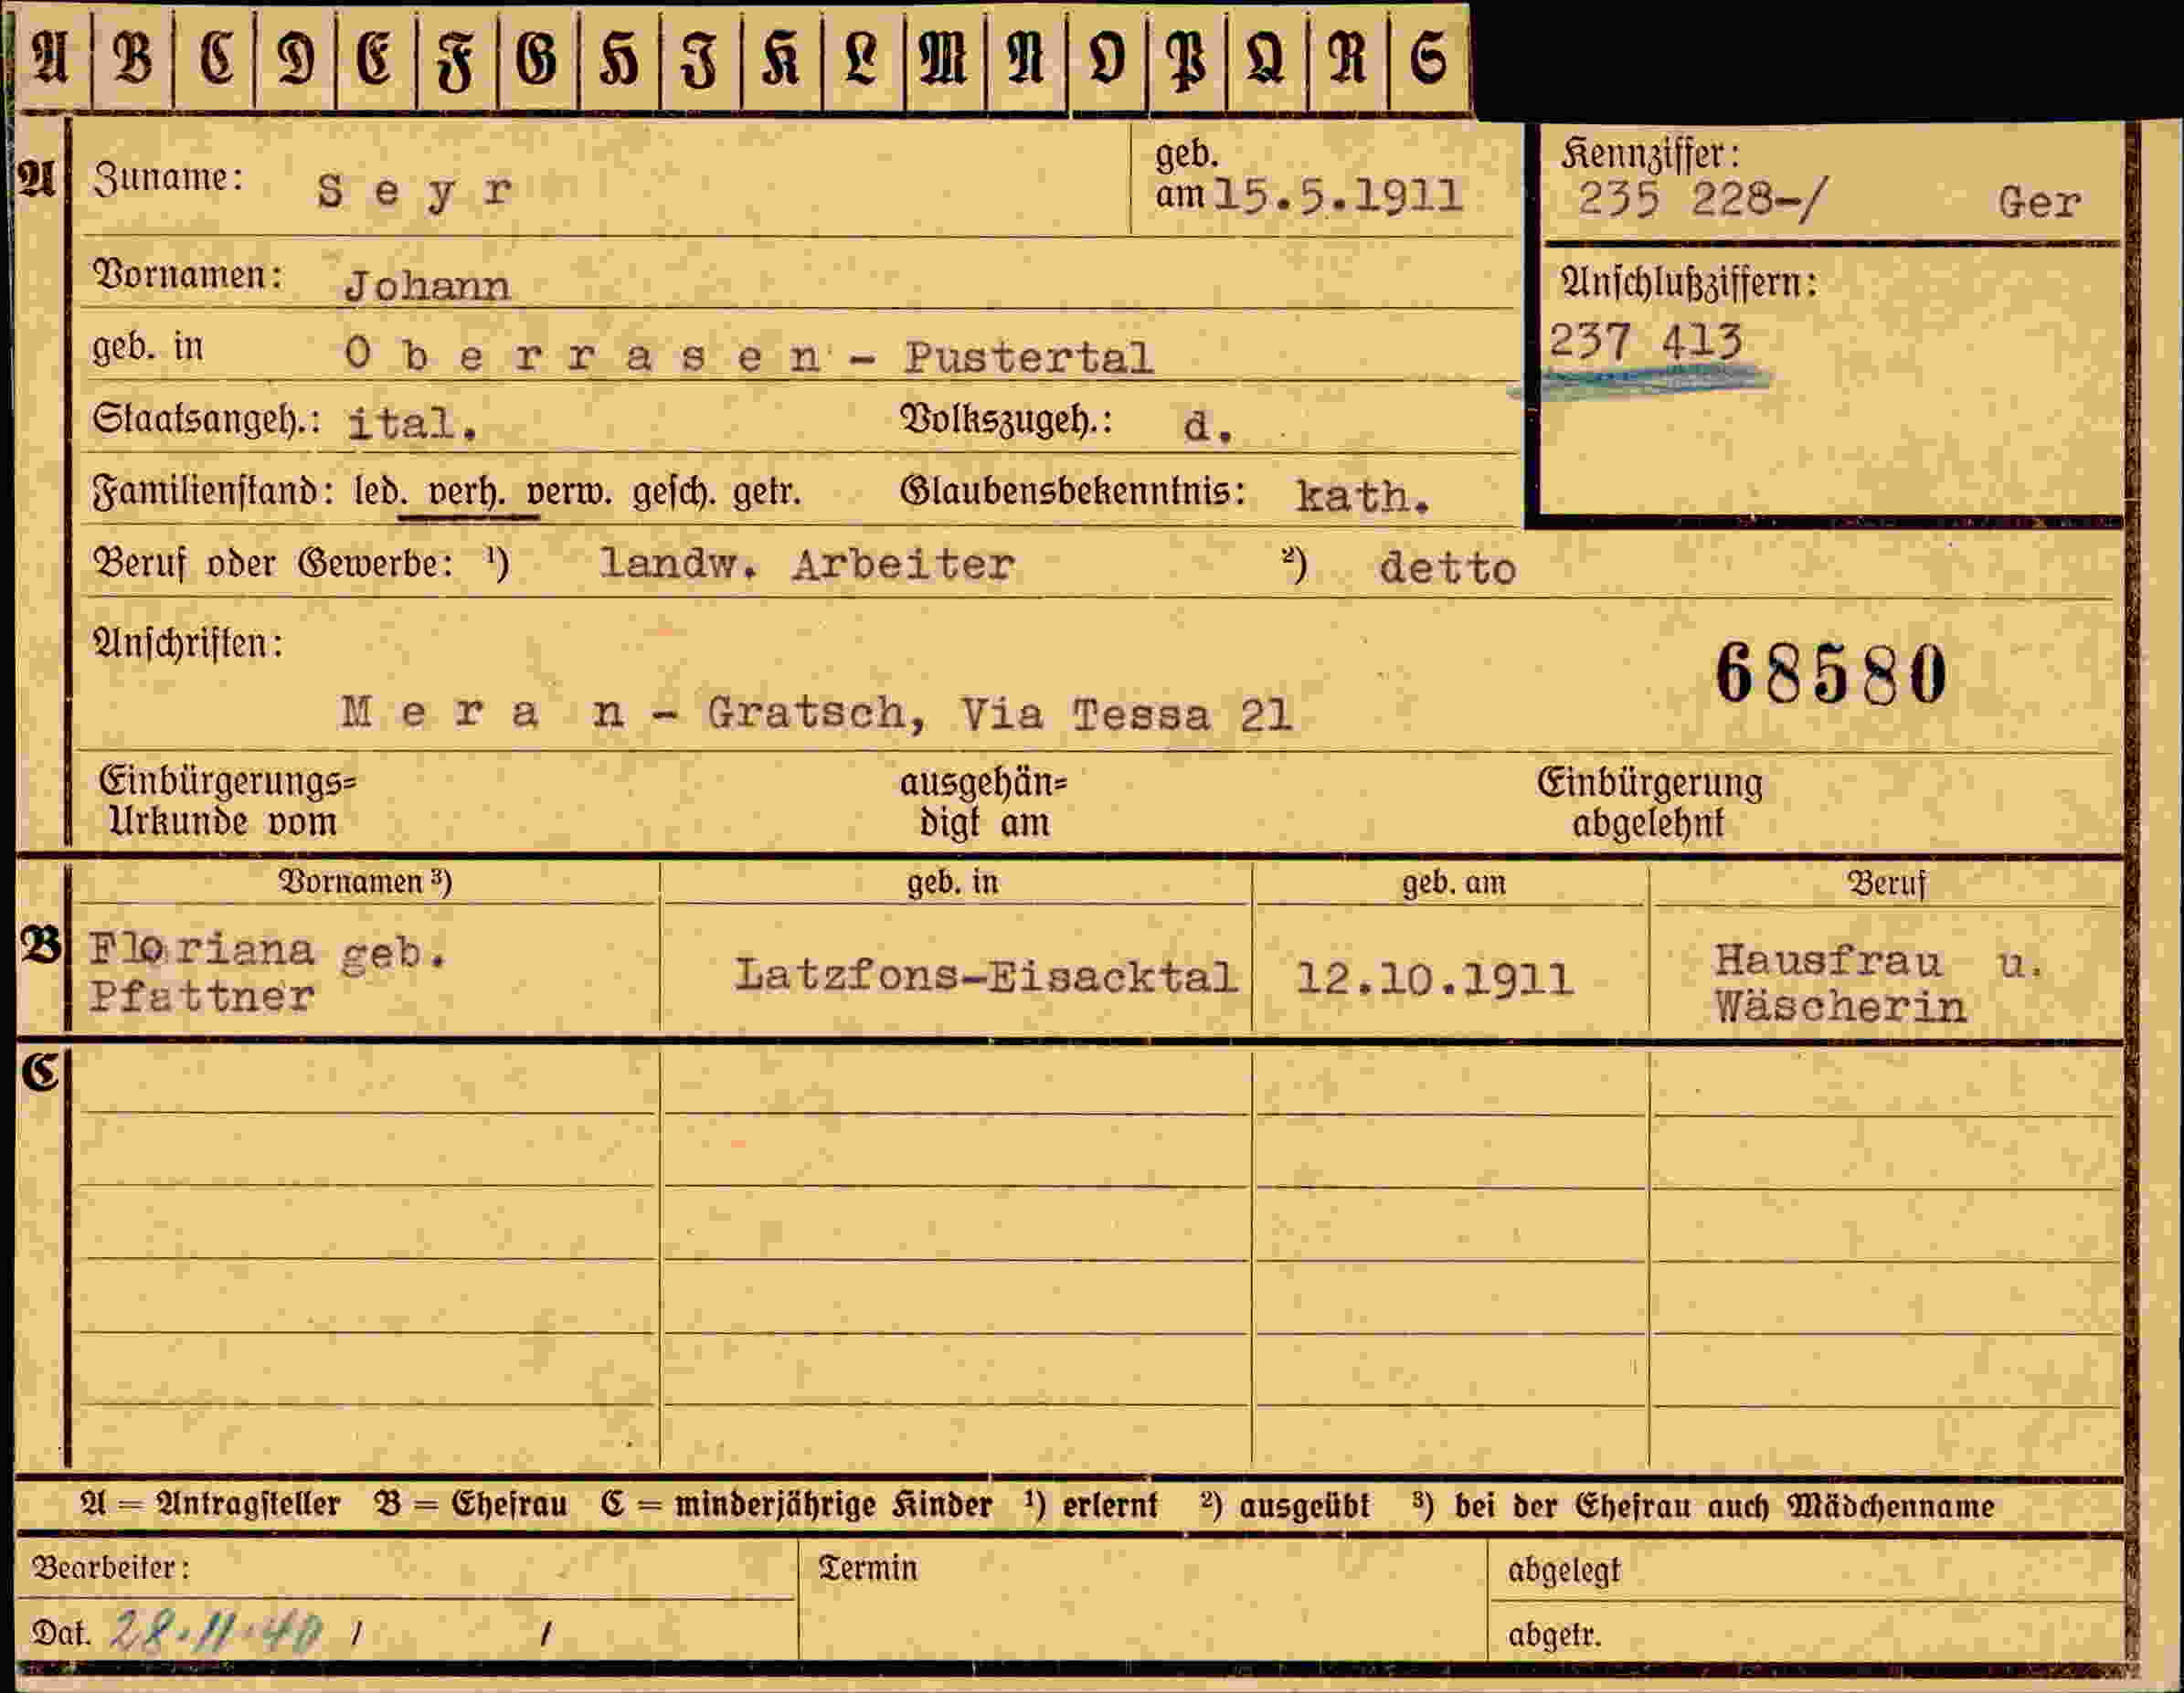 A B C D E F G H J K L M N O P Q R S
A Zuname: Seyr geb. am 15.5.1911
Kennziffer: 235 228-/ Ger
Vornamen: Johann
Anschlußziffern: 237 413
geb. in Oberrasen - Pustertal
Staatsangeh.: ital. Volkszugeh.: d.
Familienstand: led. verh. verw. gesch. getr. Glaubensbekenntnis: kath.
Beruf oder Gewerbe: ¹) landw. Arbeiter ²) detto
Anschriften:
68580
Meran - Gratsch, Via Tessa 21
Einbürgerungs= ausgehän= Einbürgerung
Urkunde vom digt am abgelehnt
Vornamen ³) geb. in geb. am Beruf
B Floriana geb. Latzfons-Eisacktal 12.10.1911 Hausfrau u.
Pfattner Wäscherin
C
A = Antragsteller B = Ehefrau C = minderjährige Kinder ¹) erlernt ²) ausgeübt ³) bei der Ehefrau auch Mädchenname
Bearbeiter: Termin abgelegt
Dat. 28.11.40 / / abgetr.